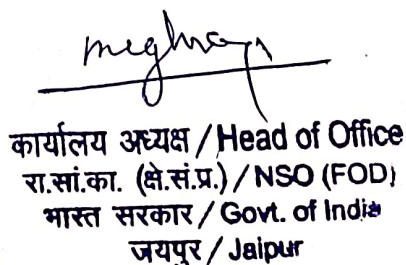 कार्यालय अध्यक्ष / Head of Office
रा.सां.का. (क्षे.सं.प्र.) / NSO (FOD)
भारत सरकार / Govt. of India
जयपुर / Jaipur